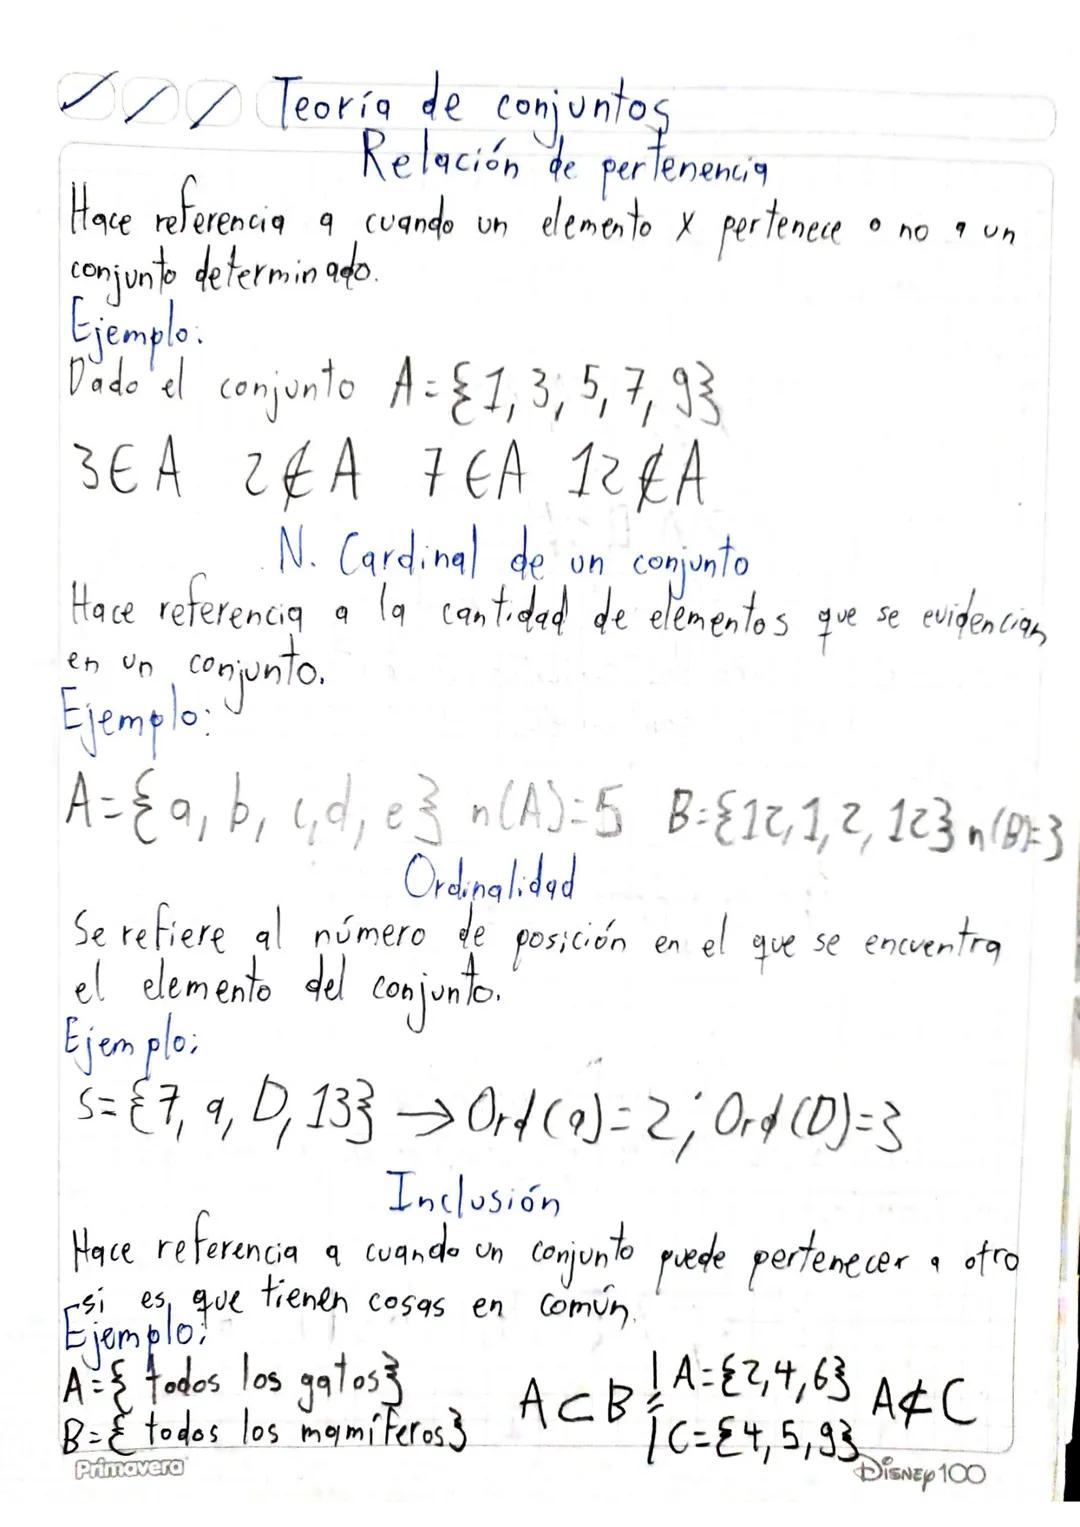 Teoría de conjuntos
Relación de pertenencia
Hace referencia a cuando un elemento x pertenece o no a un
conjunto determinado.
Ejemplo:
Dado el conjunto A={1,3,5,7,9}
3∈A 2∉A 7∈A 12∉A
N. Cardinal de un conjunto
Hace referencia a la cantidad de elementos que se evidencian
en un conjunto.
Ejemplo:
A={a, b, c,d, e} n(A)=5 B={12,1,2,12} n(B)=3
Ordinalidad
Se refiere al número de posición en el que se encuentra
el elemento del conjunto.
Ejemplo:
S={7, a, D, 13} → Ord(a)=2; Ord(D)=3
Inclusión
Hace referencia a cuando un conjunto puede pertenecer a otro
si es que tienen cosas en común.
Ejemplo:
A={todos los gatos}
B={todos los mamíferos}
A⊂B
A={2,4,6}
C={4,5,9}
A⊄C
Primavera
Disney100